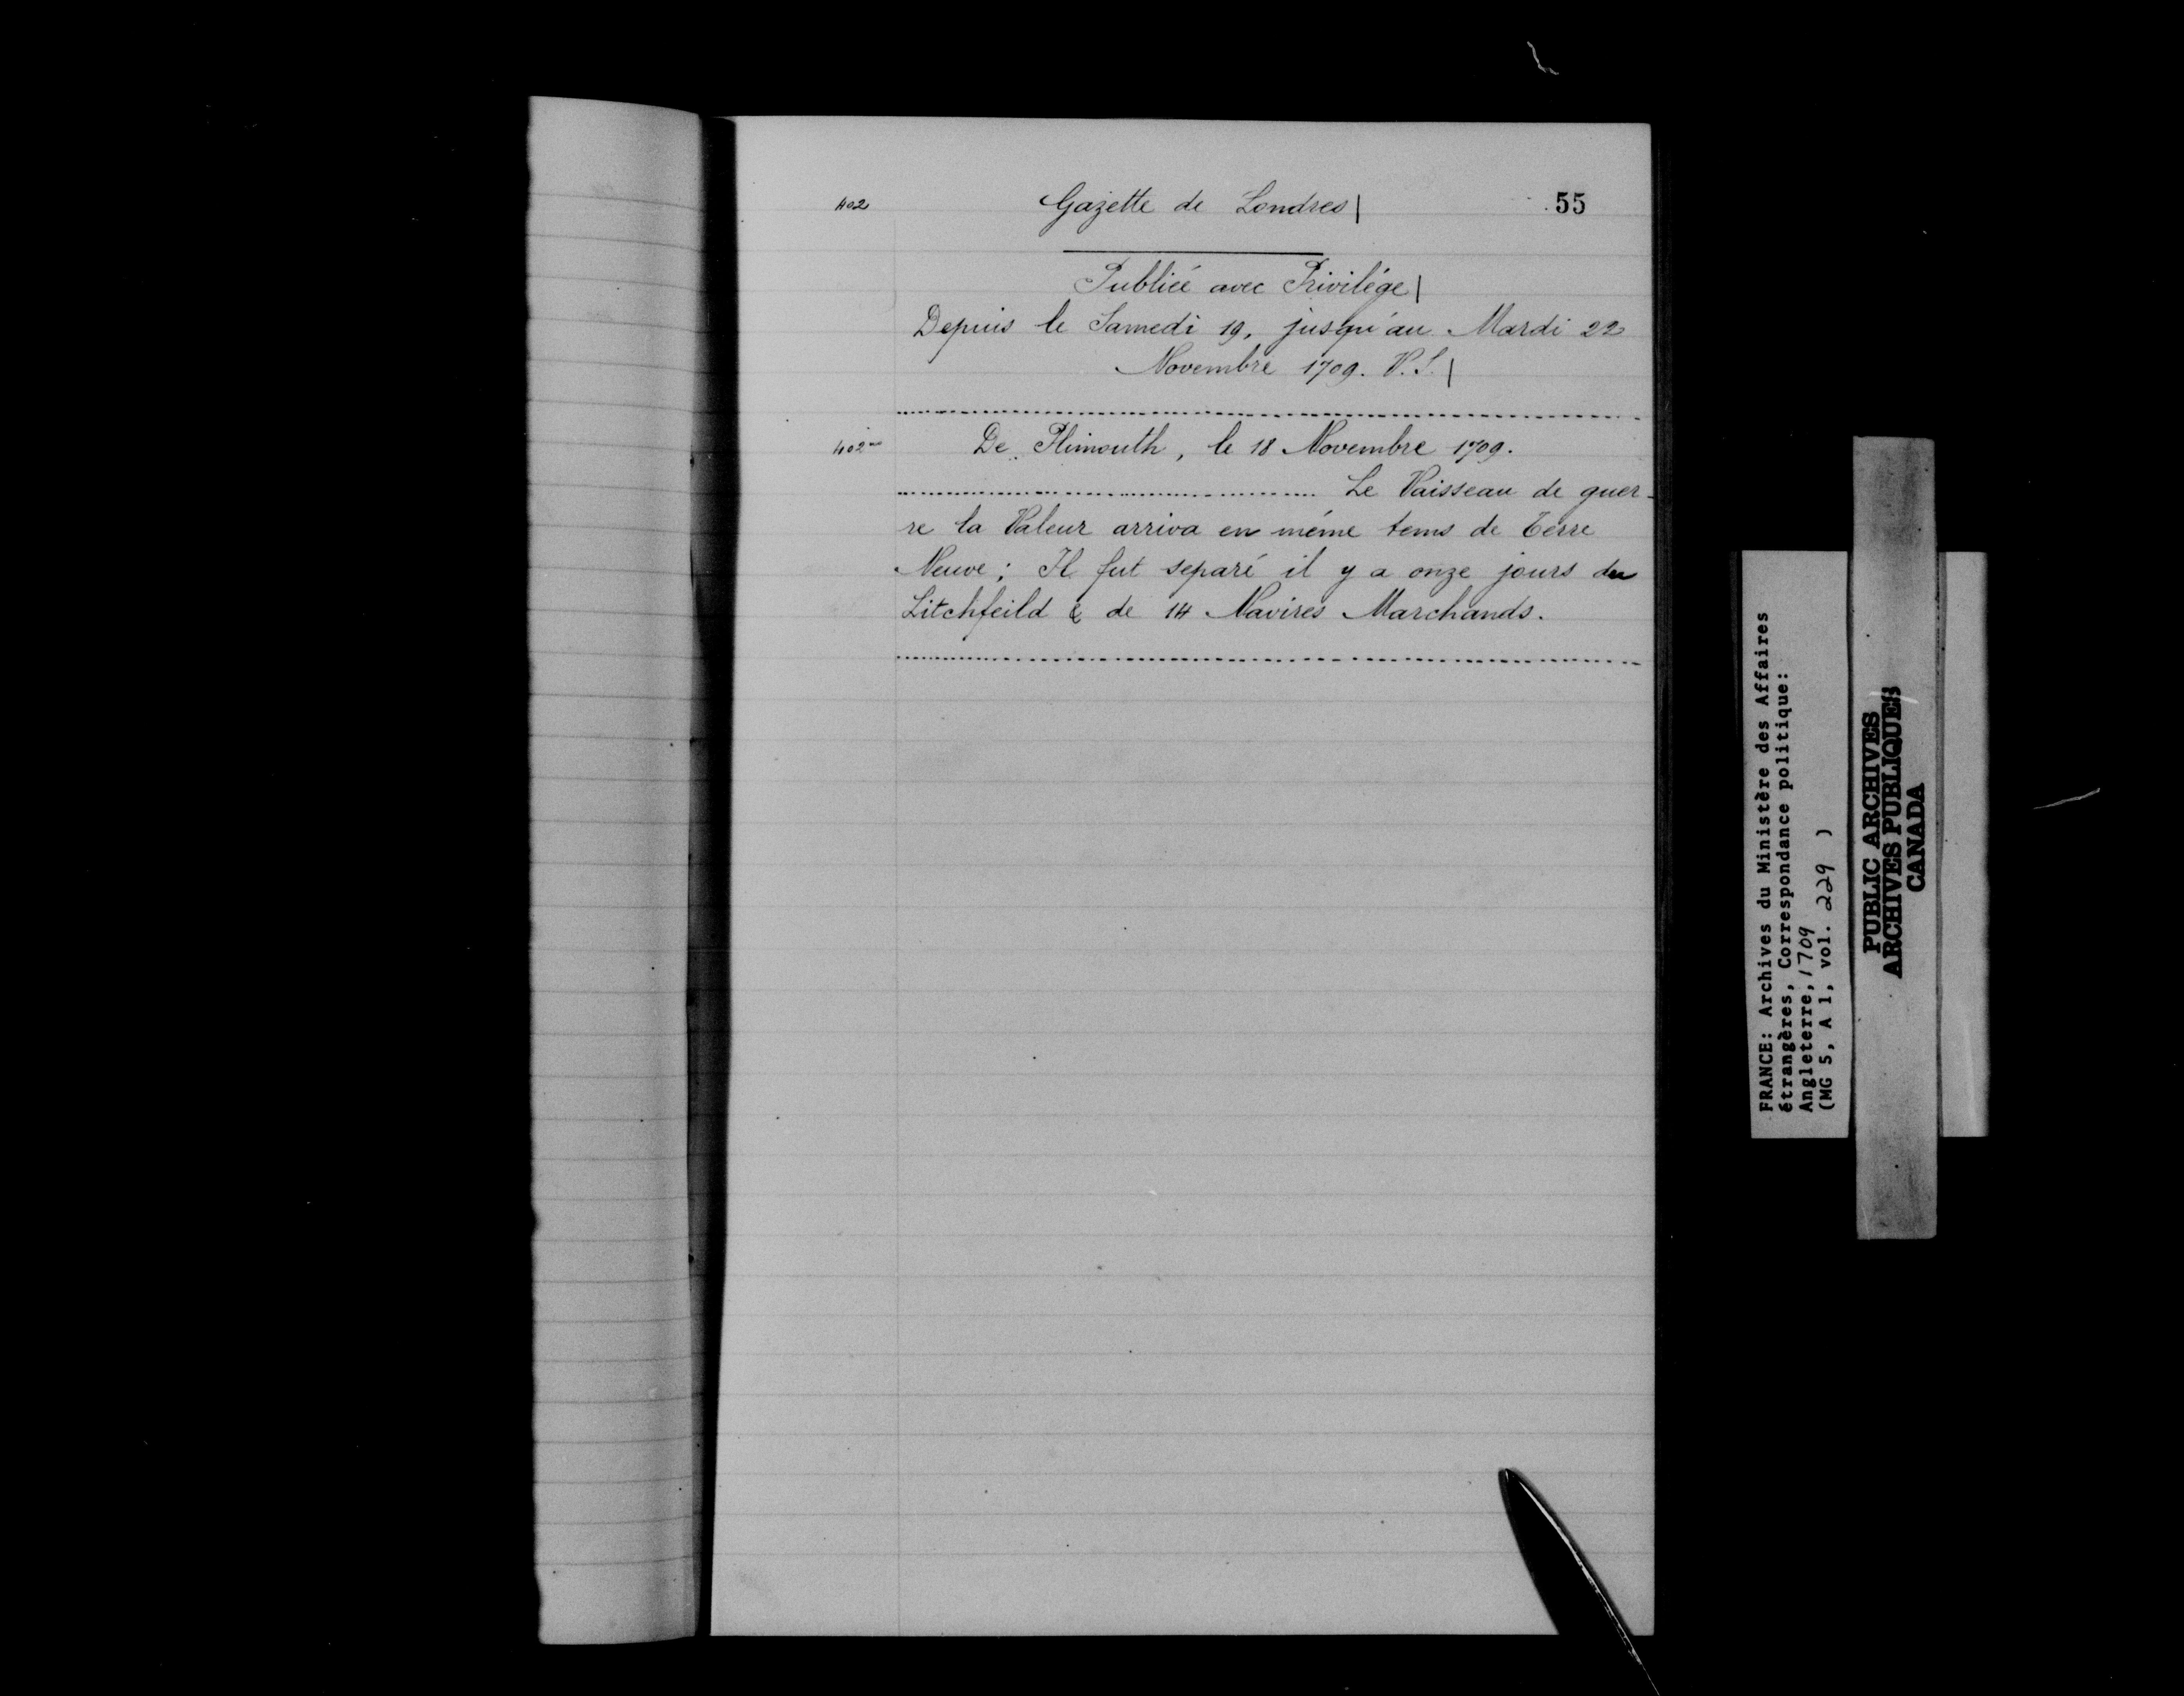 402 Gazette de Londres| 55
Publiée avec Privilége|
Depuis le Samedi 19, jusqu'au Mardi 22
Novembre 1709. V.S.|
402 vo De Plimouth, le 18 Novembre 1709.
Le Vaisseau de guer-
re la Valeur arriva en même tems de Terre
Neuve; Il fut separé il y a onze jours du
Litchfeild & de 14 Navires Marchands.
FRANCE: Archives du Ministère des Affaires
étrangères, Correspondance politique:
Angleterre, 1709
(MG 5, A 1, vol. 229 )
PUBLIC ARCHIVES
ARCHIVES PUBLIQUES
CANADA